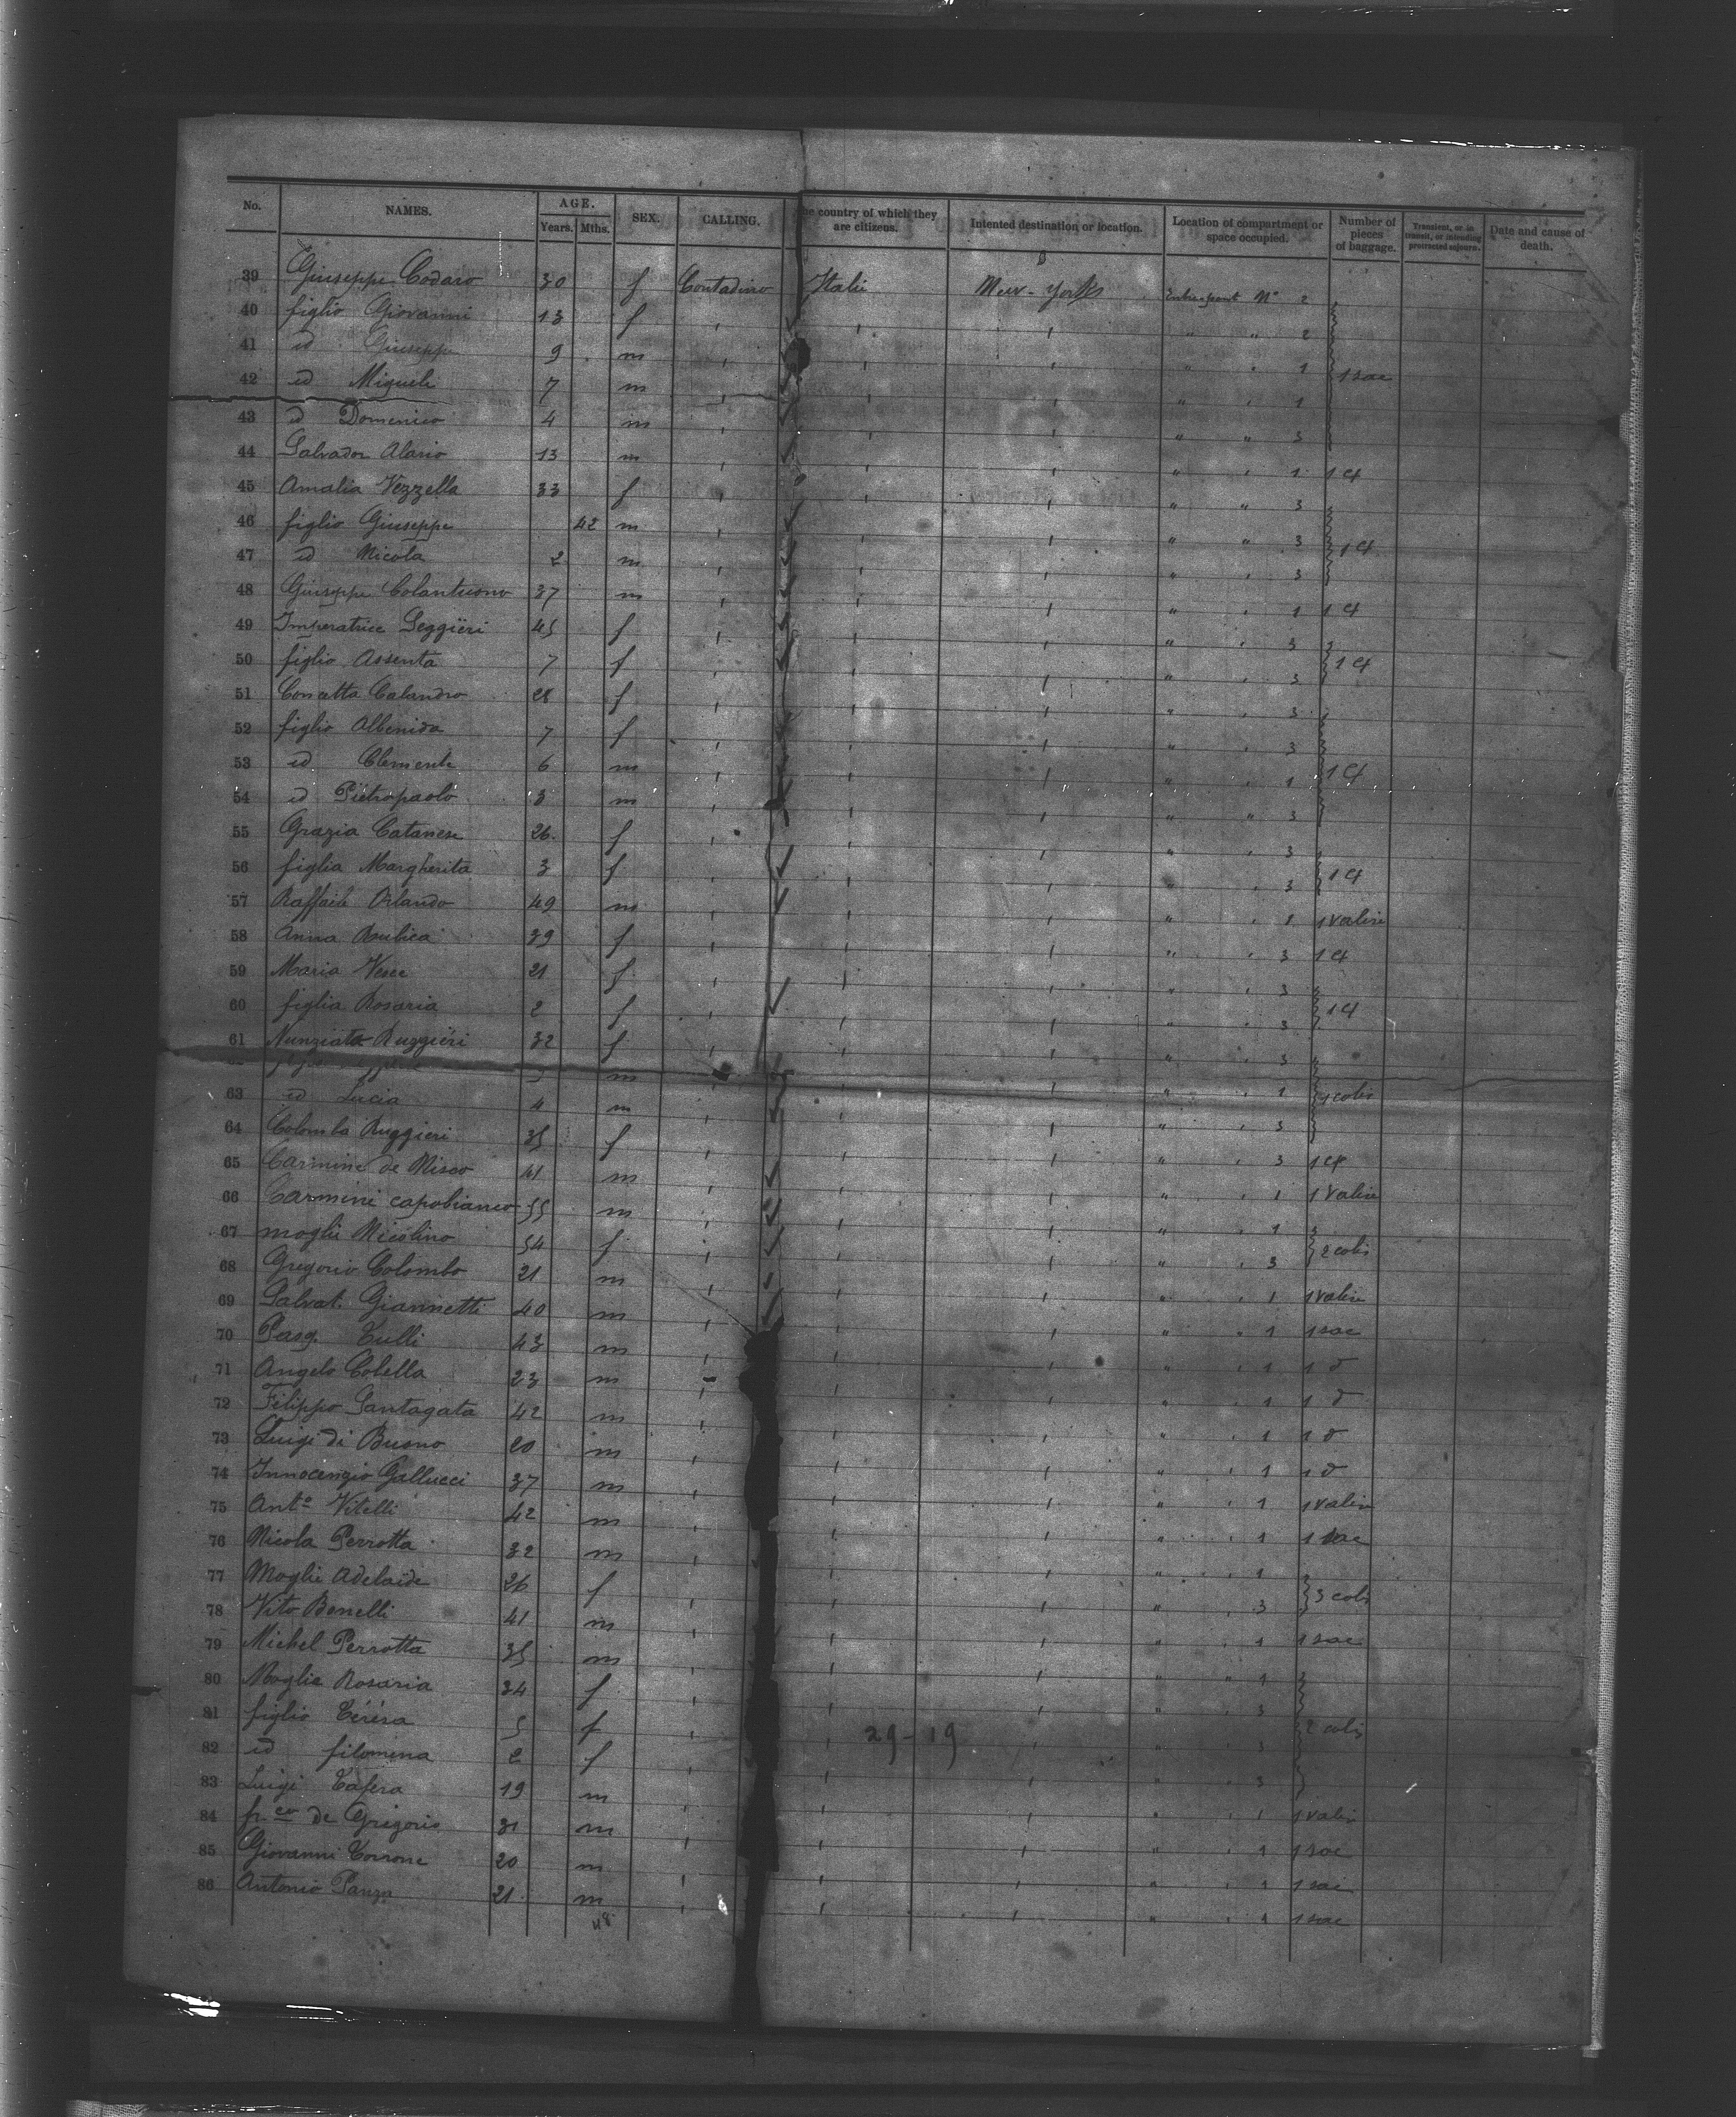 No. NAMES. AGE. Years. Mths. SEX. CALLING. he country of which they are citizens. Intented destination or location. Location of compartment or space occupied. Number of pieces of baggage. Transient, or in transit, or intending protracted sojourn. Date and cause of death.
39 Giuseppe Codaro 30 f Contadino Italie New-York Entrepont No 2
40 figlio Giovanni 13 f " " " " " 2
41 id Giuseppe 9 m " " " " " 1
42 id Migueli 7 m " " " " " 1 1 sac
43 id Domenico 4 m " " " " " 3
44 Salvador Alario 13 m " " " " " 1 1 Cf
45 Amalia Vezzella 33 f " " " " " 3
46 figlio Giuseppe 42 m " " " " " 3 1 Cf
47 id Nicola 2 m " " " " " 3
48 Giuseppe Colantuono 37 m " " " " " 1 1 Cf
49 Imperatrice Seggieri 45 f " " " " " 3
50 figlio Assenta 7 f " " " " " 3 1 Cf
51 Concetta Calandro 28 f " " " " " 3
52 figlio Albenida 7 f " " " " " 3
53 id Clemente 6 m " " " " " 1 1 Cf
54 id Pietropaolo 3 m " " " " " 3
55 Grazia Catanese 26 f " " " " " 3
56 figlia Margherita 3 f " " " " " 3 1 Cf
57 Raffaele Orlando 49 m " " " " " 1 1 valise
58 Anna 39 f " " " " " 3 1 Cf
59 Maria Vesce 21 f " " " " " 3
60 figlia Rosaria 2 f " " " " " 3 1 Cf
61 Nunziata Ruggieri 32 f " " " " " 3
m " " " " " 1 1 colis
63 id Lucia 4 m " " " " " 3
64 Colomba Ruggieri 35 f " " " " " 3 1 Cf
65 Carmine de Misco 41 m " " " " " 1 1 valise
66 Carmini capobianco 55 m " " " " " 1
67 moglie Nicolino 54 f " " " " " 3 2 colis
68 Gregorio Colombo 21 m " " " " " 1 1 valise
69 Salvat. Giannetti 40 m " " " " " 1 1 sac
70 Pasq. Tulli 43 m " " " " " 1 1 d
71 Angelo Colella 23 m " " " " " 1 1 d
72 Filippo Santagata 42 m " " " " " 1 1 d
73 Luigi di Buono 20 m " " " " " 1 1 d
74 Innocenzio Gallucci 37 m " " " " " 1 1 valise
75 Anto Vitelli 42 m " " " " " 1 1 sac
76 Nicola Perrotta 32 m " " " " " 1
77 Moglie Adelaide 26 f " " " " " 3 3 colis
78 Vito Bonelli 41 m " " " " " 1 1 sac
79 Michel Perrotta 35 m " " " " " 1
80 Moglie Rosaria 34 f " " " " " 3
81 figlio Térésa 5 f " " " " " 3 2 colis
82 id filomina 2 f " " " " " 3
29-19
83 Luigi Tafera 19 m " " " " " 1 1 valise
84 fr.co de Grigorio 31 m " " " " " 1 1 sac
85 Giovanni Torrone 20 m " " " " " 1 1 sac
86 Antonio Panza 21 m " " " " " 1 1 sac
48